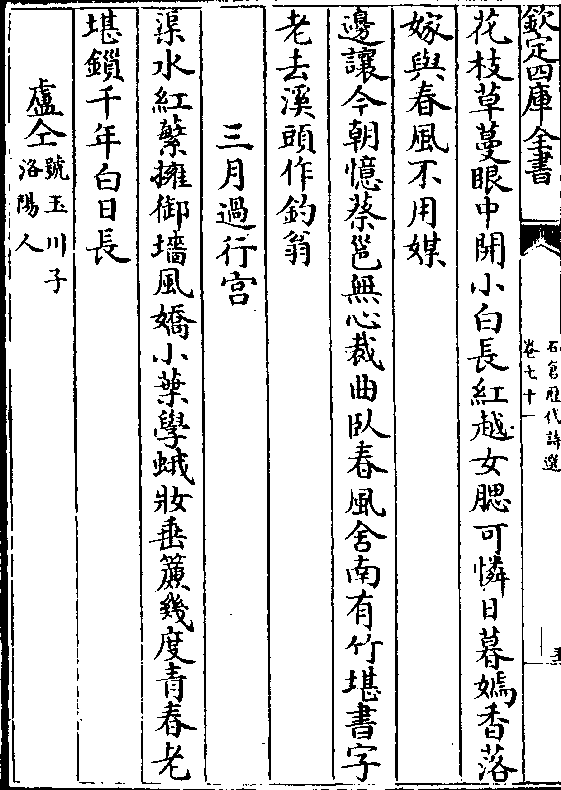 欽定四庫全書
石倉歷代詩選
卷七十一
花枝草蔓眼中開小白長紅越女腮可憐日暮嫣香落
嫁與春風不用媒
邊讓今朝憶蔡邕無心裁曲臥春風舍南有竹堪書字
老去溪頭作釣翁
三月過行宫
渠水紅蘩擁御墻風嬌小葉學蛾妝垂簾幾度青春老
堪鎖千年白日長
盧仝號玉川子
洛陽人